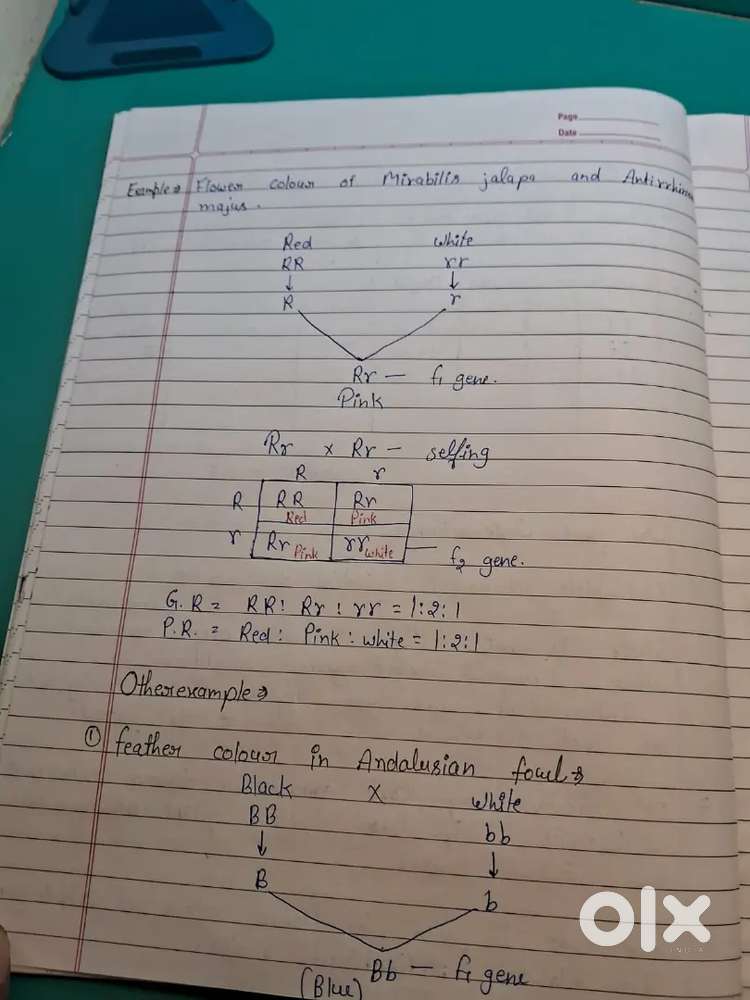 Page
Date
Example → Flower colour of Mirabilis jalapa and Antirrhinum
majus.
Red White
RR rr
↓ ↓
R r
Rr — f1 gene.
Pink
Rr x Rr — selfing
R r
R RR Rr
Red Pink
r Rr Pink rr white — f2 gene.
G.R = RR : Rr : rr = 1:2:1
P.R. = Red : Pink : white = 1:2:1
Other example →
① feather colour in Andalusian fowl →
Black X white
BB bb
↓ ↓
B b
Bb — f1 gene
(Blue)
olx
INDIA